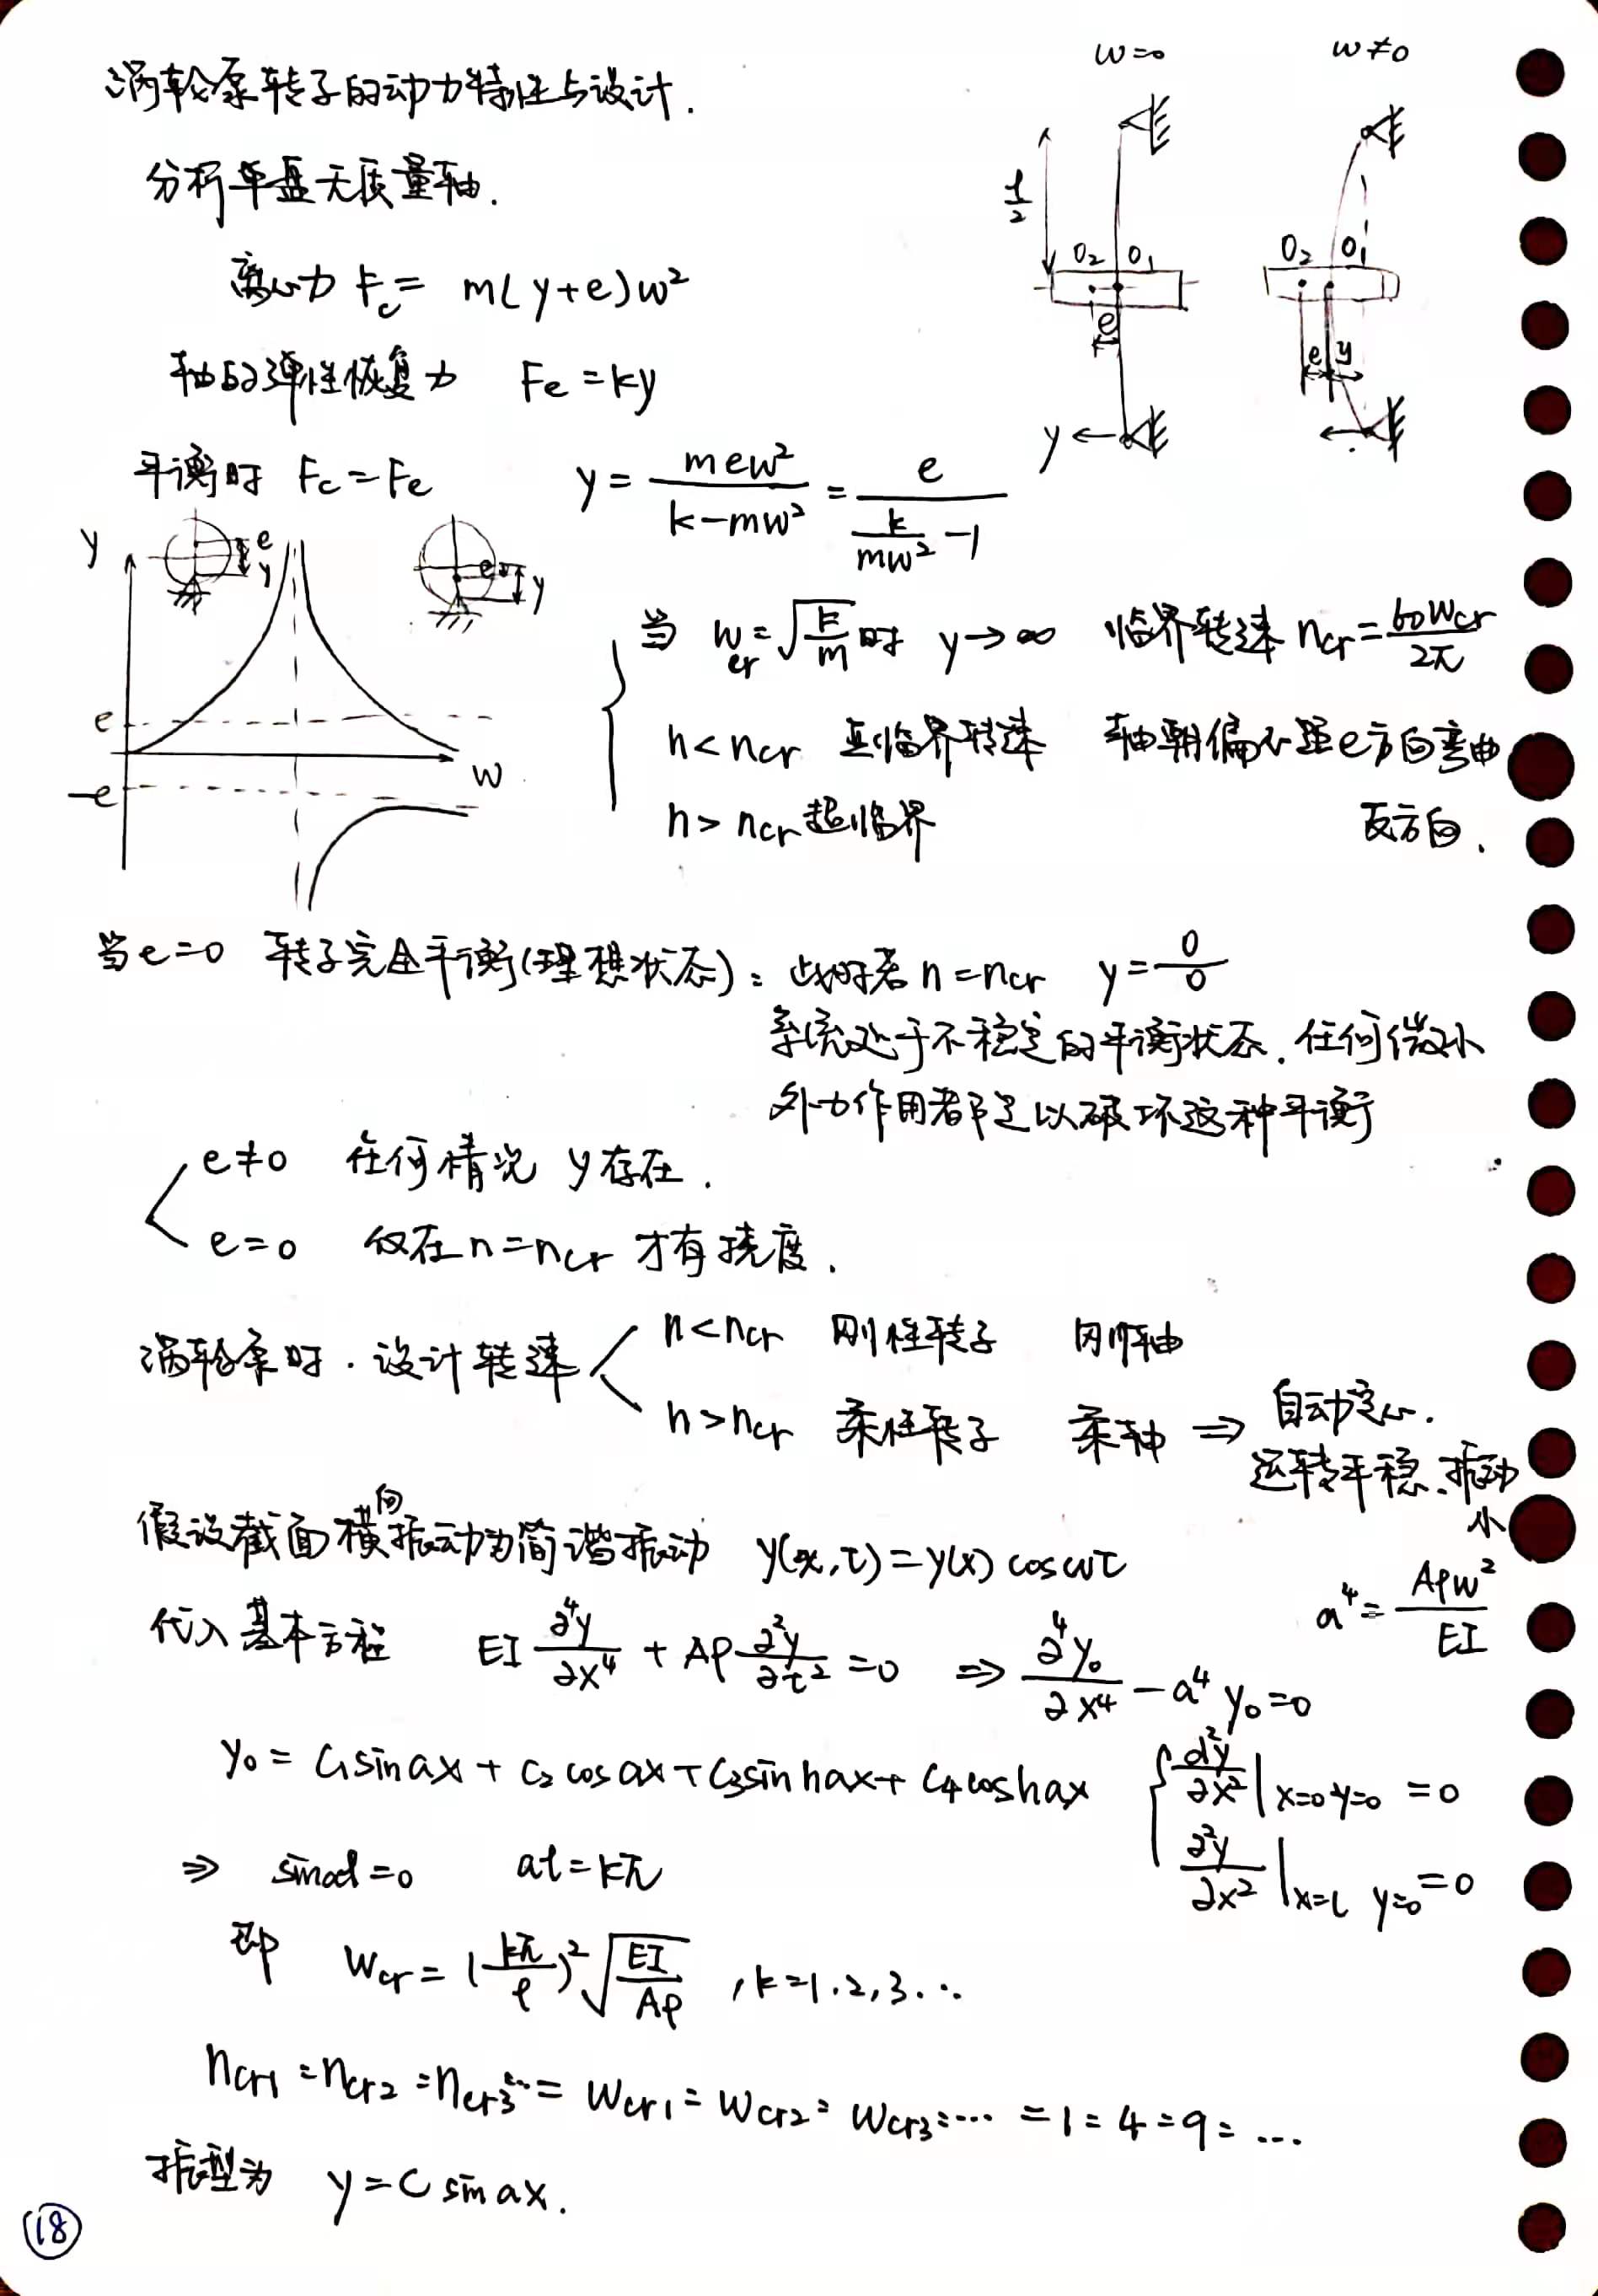 涡轮泵转子的动力特性与设计.
w=0
w≠0
分析单盘无质量轴.
l/2
O₂ O₁
O₂ O₁
e
e y
y
离心力 Fc = m(y+e)w²
轴的弹性恢复力 Fe = ky
平衡时 Fc = Fe y = mew²/(k-mw²) = e/(k/(mw²) - 1)
y
e
y
e
y
e
-e
w
当 wcr = √(k/m) 时 y→∞ 临界转速 ncr = 60wcr/2π
n<ncr 亚临界转速 轴朝偏心距e方向弯曲
n>ncr 超临界 反方向.
当e=0 转子完全平衡(理想状态): 此时若 n=ncr y=0/0
系统处于不稳定的平衡状态. 任何微小
外力作用都足以破坏这种平衡
e≠0 任何情况 y存在.
e=0 仅在n=ncr 才有挠度.
涡轮泵时. 设计转速
n<ncr 刚性转子 刚轴
n>ncr 柔性转子 柔轴 ⇒ 自动定心.
运转平稳.振动
小
假设截面横向振动为简谐振动 y(x,τ)=y(x) coswτ
a⁴ = Aρw²/EI
代入基本方程 EI ∂⁴y/∂x⁴ + Aρ ∂²y/∂τ² = 0 ⇒ ∂⁴y₀/∂x⁴ - a⁴y₀=0
y₀ = C₁sin ax + C₂ cos ax + C₃sinhax + C₄coshax
d²y/∂x² | x=0 y=0 = 0
∂²y/∂x² | x=l y=0 = 0
⇒ sinal=0 al=kπ
即 wcr = (kπ/l)² √(EI/Aρ) , k=1.2,3...
ncr1 : ncr2 : ncr3 ... = wcr1 : wcr2 : wcr3 : ... = 1 : 4 : 9 : ...
振型为 y=C sin ax.
18